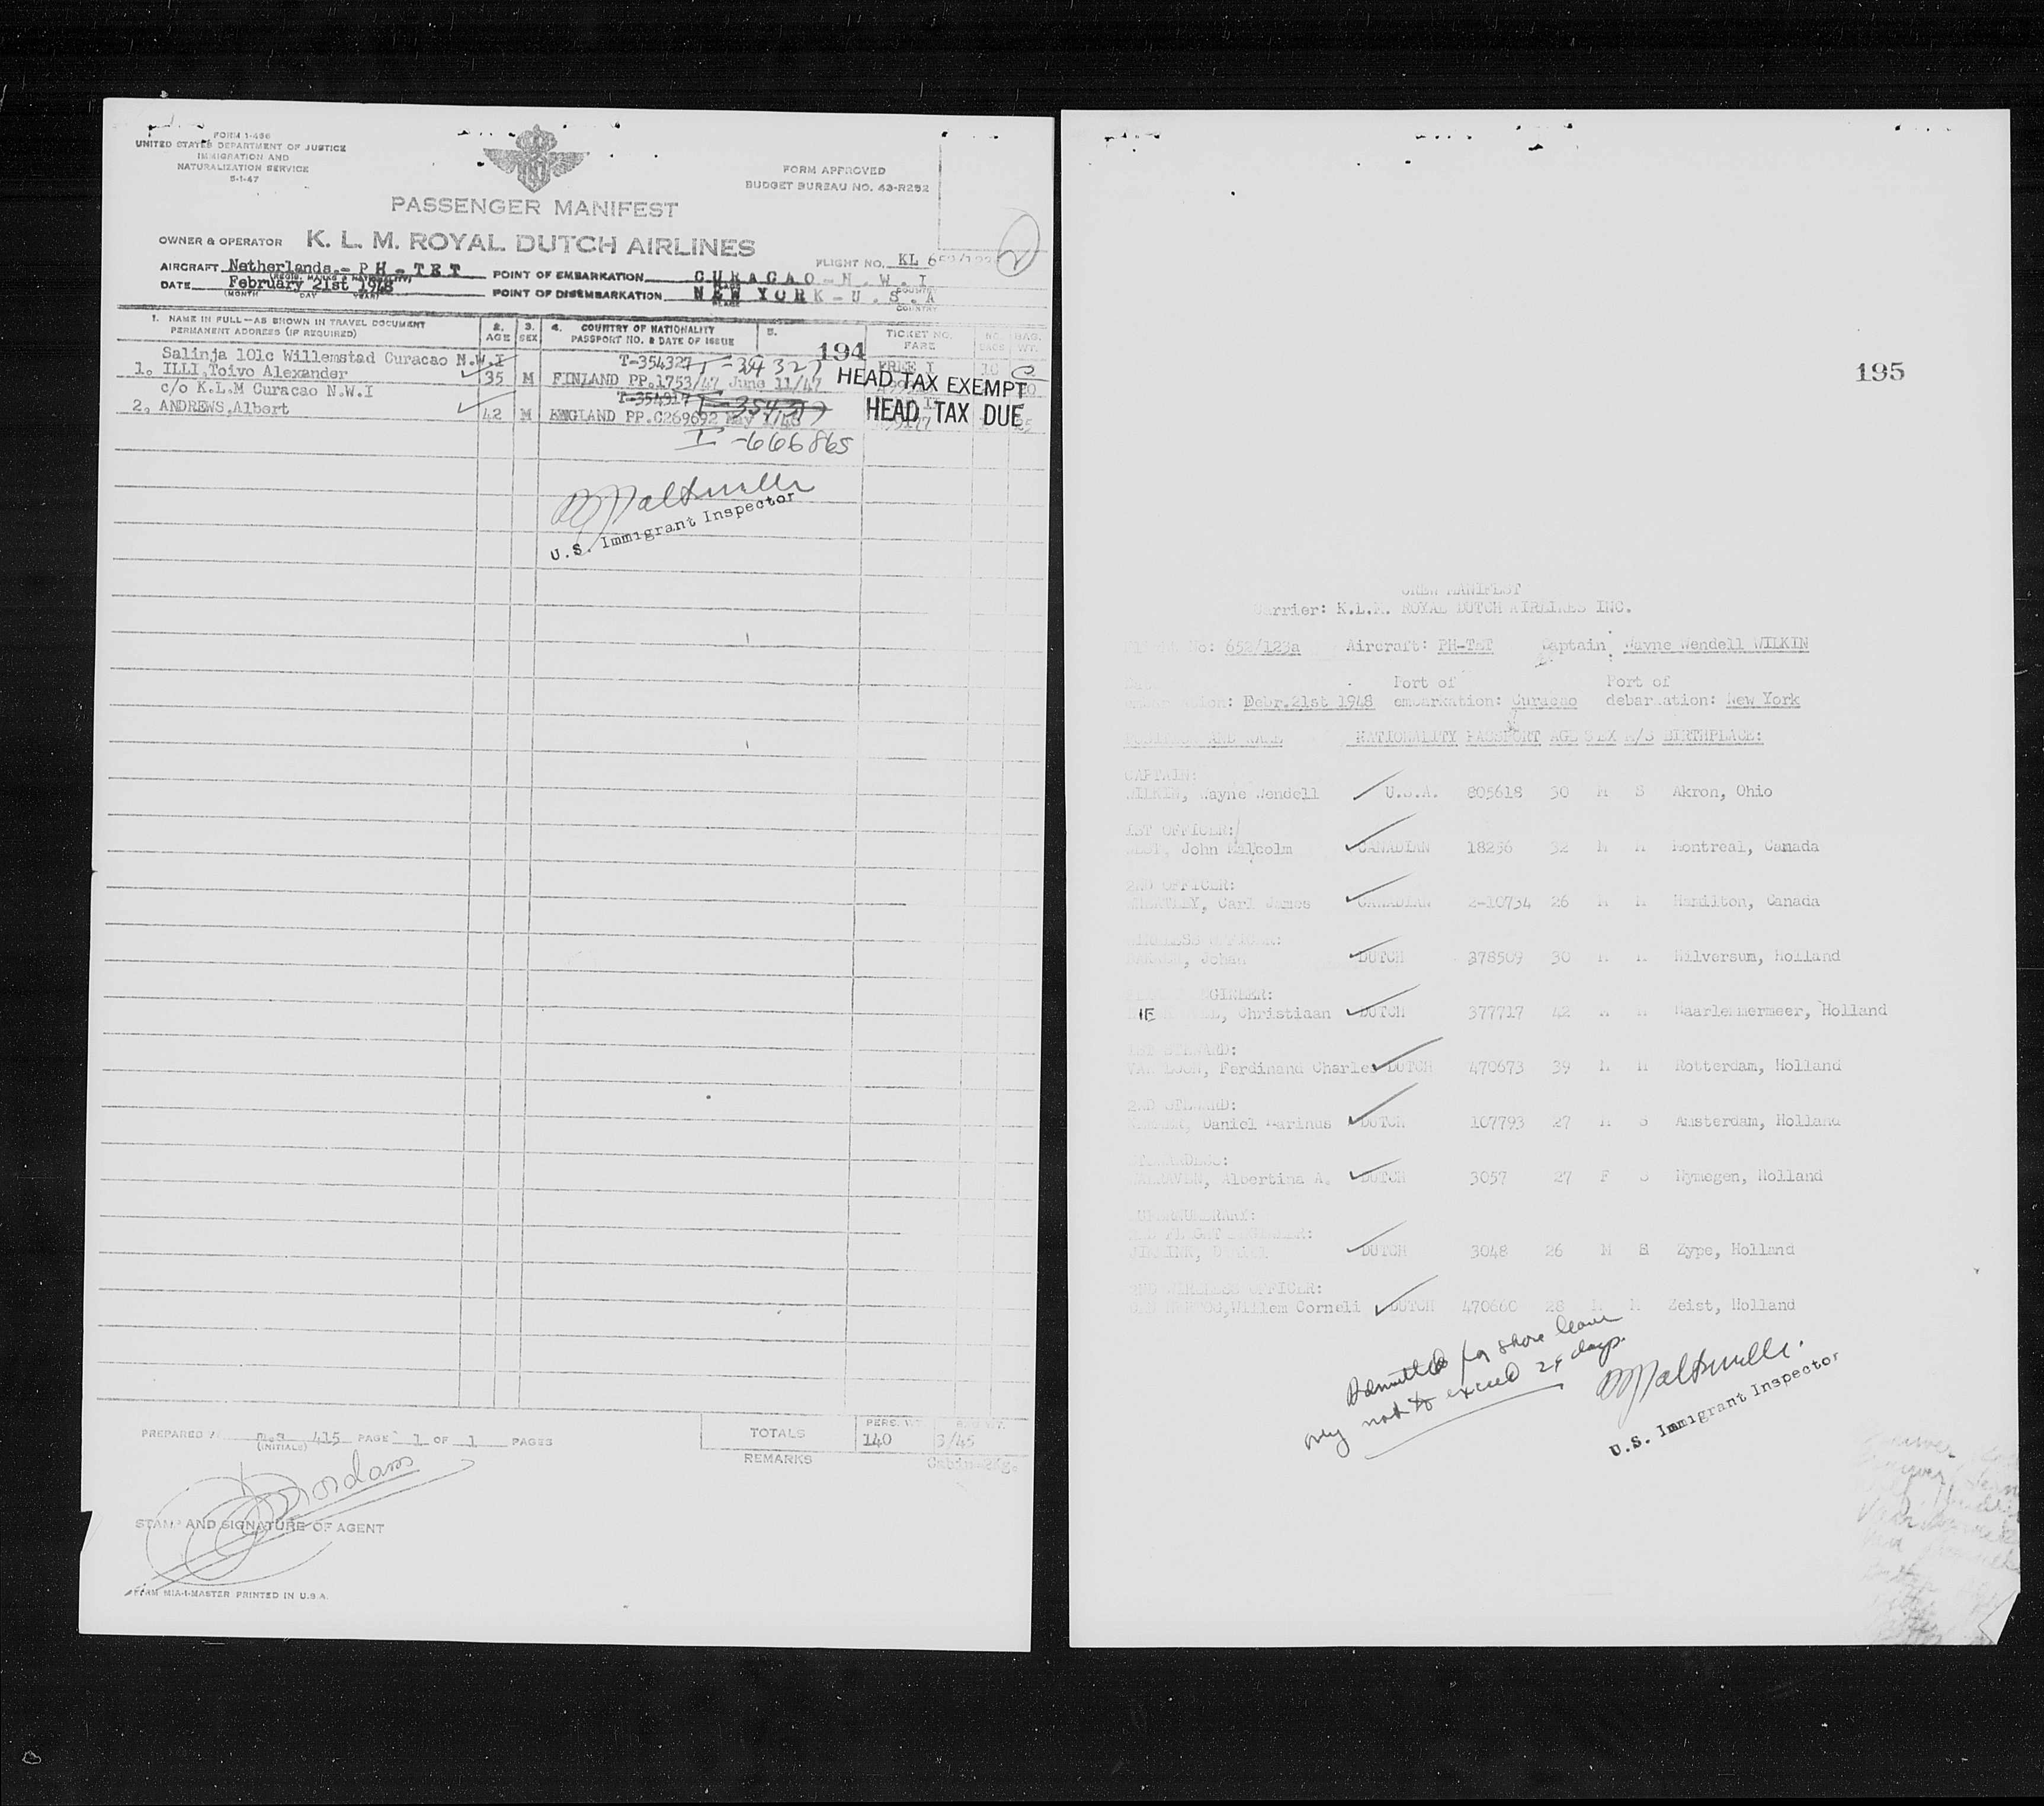 FORM I-466
UNITED STATES DEPARTMENT OF JUSTICE
IMMIGRATION AND
NATURALIZATION SERVICE
5-1-47
FORM APPROVED
BUDGET BUREAU NO. 43-R252
PASSENGER MANIFEST
OWNER & OPERATOR K. L. M. ROYAL DUTCH AIRLINES
FLIGHT NO. KL 652/123
AIRCRAFT Netherlands.- PH-TET POINT OF EMBARKATION CURACAO-N.W.I
DATE February 21st 1948 POINT OF DISEMBARKATION NEW YORK-U.S.A
(MONTH DAY YEAR) PLACE COUNTRY
1. NAME IN FULL—AS SHOWN IN TRAVEL DOCUMENT 2. 3. 4. COUNTRY OF NATIONALITY 5. TICKET NO. NO. BAG.
PERMANENT ADDRESS (IF REQUIRED) AGE SEX PASSPORT NO. & DATE OF ISSUE FARE WT.
194
Salinja 101c Willemstad Curacao N.W.I T-354327 T-354327 FREE I 10
1. ILLI,Toivo Alexander 35 M FINLAND PP.1753/47 June 11/47 HEAD TAX EXEMPT
c/o K.L.M Curacao N.W.I T-354917
2. ANDREWS,Albert 42 M ENGLAND PP.C269692 May 1/46 HEAD TAX DUE
I-666865
U.S. Immigrant Inspector
PREPARED 415 PAGE 1 OF 1 PAGES
(INITIALS)
TOTALS 140 3/45
REMARKS
STAMP AND SIGNATURE OF AGENT
FORM MIA-1-MASTER PRINTED IN U.S.A.
195
CREW MANIFEST
Carrier: K.L.M. ROYAL DUTCH AIRLINES INC.
No: 652/123a Aircraft: PH-TET Captain: Wayne Wendell WILKIN
Port of Port of
Febr.21st 1948 embarkation: Curacao debarkation: New York
POSITION AND NAME NATIONALITY PASSPORT AGE SEX M/S BIRTHPLACE:
CAPTAIN:
WILKIN, Wayne Wendell U.S.A. 805618 30 M S Akron, Ohio
1ST OFFICER:
John Malcolm CANADIAN 18256 32 M M Montreal, Canada
2ND OFFICER:
WHEATLEY, Carl James CANADIAN 2-10734 26 M M Hamilton, Canada
WIRELESS OFFICER:
Johan DUTCH 378509 30 M M Hilversum, Holland
ENGINEER:
Christiaan DUTCH 377717 42 M M Haarlemmermeer, Holland
1ST STEWARD:
VAN LOON, Ferdinand Charles DUTCH 470673 39 M M Rotterdam, Holland
2ND STEWARD:
Daniel Marinus DUTCH 107793 27 M S Amsterdam, Holland
STEWARDESS:
WALRAVEN, Albertina A. DUTCH 3057 27 F S Nymegen, Holland
SUPERNUMERARY:
2ND FLIGHT ENGINEER:
DUTCH 3048 26 M Zype, Holland
2ND WIRELESS OFFICER:
DEN HERTOG,Willem Corneli DUTCH 470660 28 M M Zeist, Holland
Admitted for shore leave
only not to exceed 29 days.
U.S. Immigrant Inspector